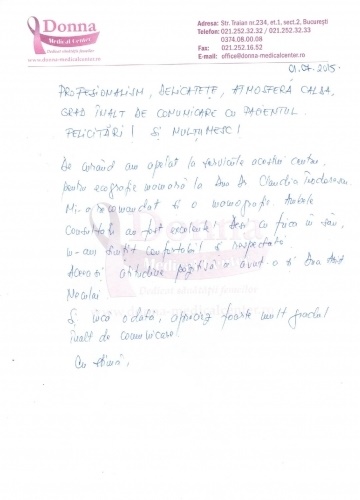 Donna
Medical Center
Dedicat sănătății femeilor
www.donna-medicalcenter.ro
Adresa: Str. Traian nr.234, et.1, sect.2, București
Telefon: 021.252.32.32 / 021.252.32.33
0374.08.00.08
Fax: 021.252.16.52
E-mail: office@donna-medicalcenter.ro
01.07.2015.
PROFESIONALISM, DELICATEȚE, ATMOSFERĂ CALDĂ,
GRAD ÎNALT DE COMUNICARE CU PACIENTUL.
FELICITĂRI! ȘI MULȚUMESC!
De curând am apelat la serviciile acestui centru,
pentru ecografie mamară la Dna Dr. Claudia Teodorescu.
Mi-a recomandat și o mamografie. Ambele
consultații au fost excelente! Deși cu frica în sân,
m-am simțit confortabil și respectată.
Aceeași atitudine pozitivă a avut-o și Dna Asist
Neculai
Și încă odată, apreciez foarte mult gradul
înalt de comunicare!
Cu stimă,
Donna
Medical Center
Dedicat sănătății femeilor